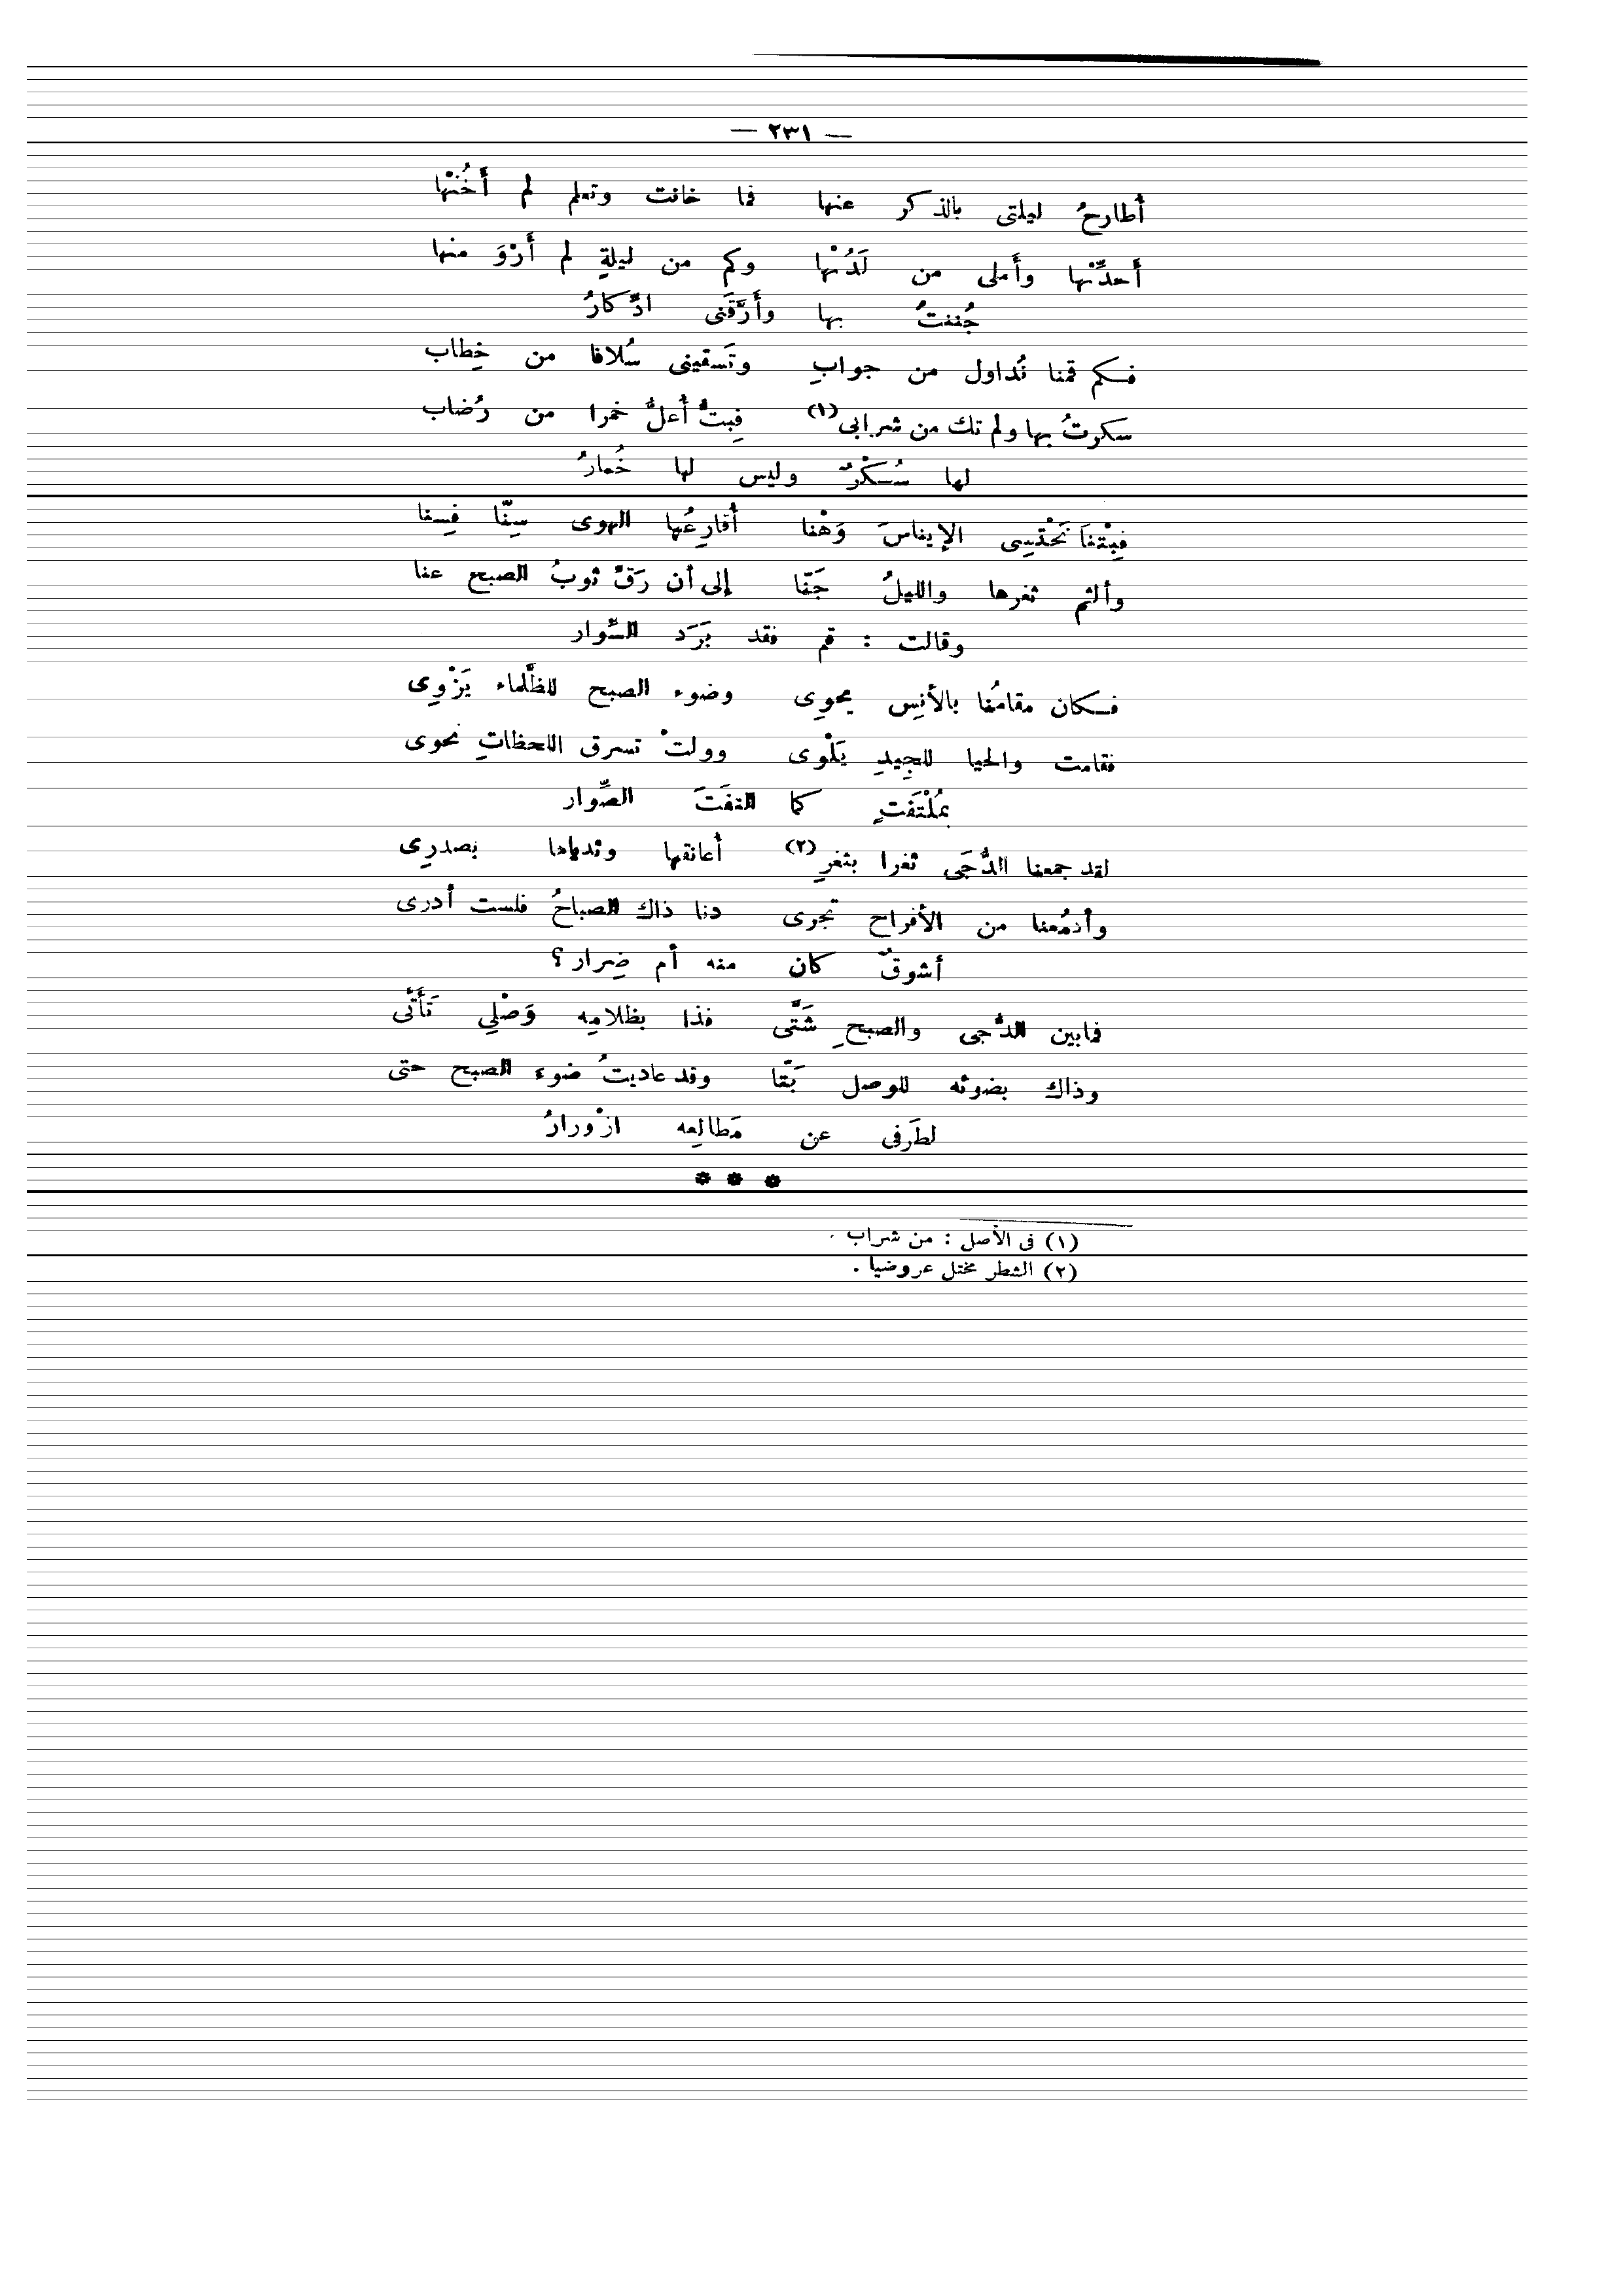 — ٢٣١ —
أطارحُ ليلتى بالذكر عنها فما خانت وتعلم لم أَخُنْها
أَحدِّثها وأَملى من لَدُنْها وكم من ليلةٍ لم أَرْوَ منها
جُننتُ بها وأَرَّقَنى ادِّكارُ
فـكم قمنا نُداول من جوابِ وتَسقينى سُلافا من خِطاب
سكرتُ بها ولم تك من شرابى(١) فِبتُّ أُعلُّ خمرا من رُضاب
لها سُـكْرٌ وليس لها خُمارُ
فبِتْنَا نَحْتسِى الإيناسَ وَهْنا أُقارِعُها الهوى سِنًّا فسِنا
وألثم ثغرها والليلُ جَنّا إلى أن رَقَّ ثوبُ الصبح عنا
وقالت : قم فقد بَرَد السِّوار
فـكان مقامُنا بالأنسِ يحوِى وضوء الصبح للظَّلماء يَزْوِى
فقامت والحيا للجِيدِ يَلْوى وولتْ تسرق اللحظاتِ نحوى
بمُلْتفَتٍ كما التفَتَ الصِّوار
لقد جمعنا الدُّجَى ثغرا بثغرٍ(٢) أُعانقها وثدياها بصدرِى
وأدمُعنا من الأفراح تجرى دنا ذاك الصباحُ فلست أدرى
أشوقٌ كان منه أم ضِرار ؟
فما بين الدُّجى والصبحِ شَتَّى فذا بظلامِه وَصْلِي تَأَتَّى
وذاك بضوئه للوصل بَتّا وقد عاديتُ ضوء الصبح حتى
لطَرفى عن مَطالِعه ازْورارُ
* * *
(١) فى الأصل : من شراب .
(٢) الشطر مختل عروضيا .